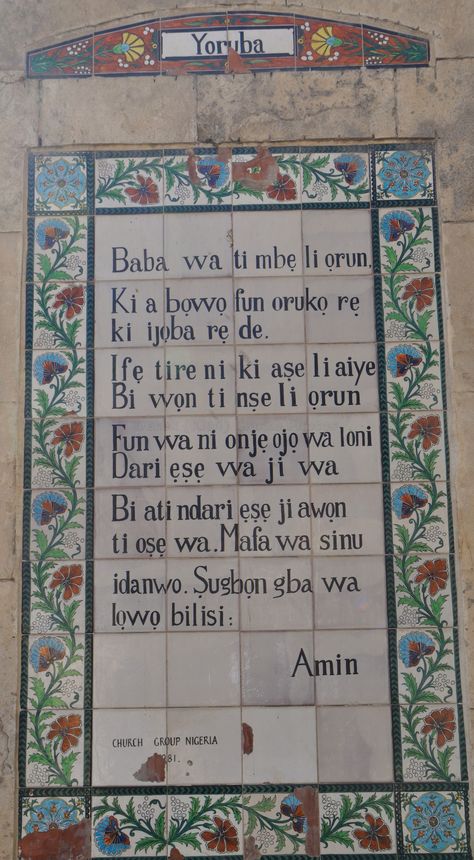 Yoruba
Baba wa ti mbẹ li ọrun.
Ki a bọwọ fun orukọ rẹ
ki ijọba rẹ de.
Ifẹ tire ni ki aṣe li aiye
Bi wọn ti nṣe li ọrun
Fun wa ni onjẹ ojọ wa loni
Dari ẹṣẹ wa ji wa
Bi ati ndari ẹṣẹ ji awọn
ti oṣẹ wa. Mafa wa sinu
idanwo. Ṣugbọn gba wa
lọwọ bilisi:
Amin
CHURCH GROUP NIGERIA